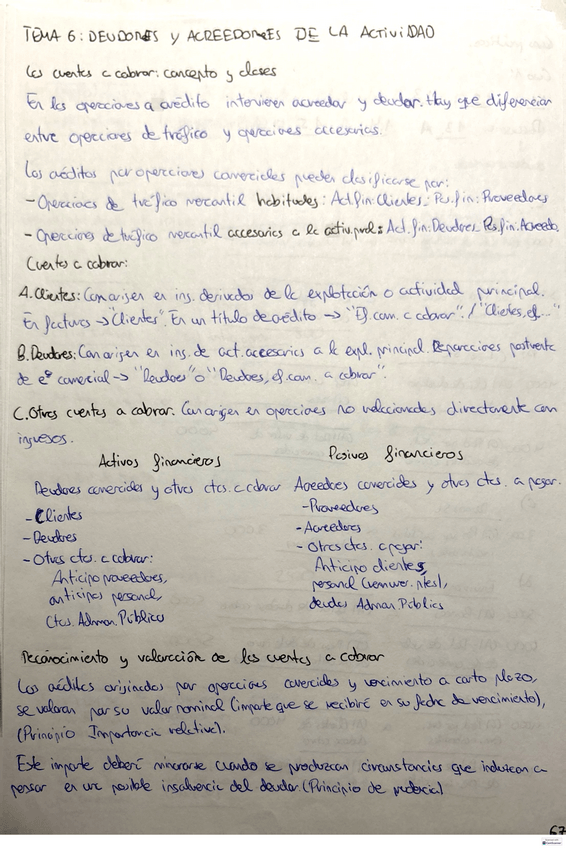 TEMA 6: DEUDORES Y ACREEDORES DE LA ACTIVIDAD
Las cuentas a cobrar: concepto y clases
En las operaciones a crédito intervienen acreedor y deudor. Hay que diferenciar
entre operaciones de tráfico y operaciones accesorias.
Los créditos por operaciones comerciales pueden clasificarse por:
- Operaciones de tráfico mercantil habituales: Act.fin: Clientes. Pas.fin: Proveedores
- Operaciones de tráfico mercantil accesorias a la activ.ppal: Act.fin: Deudores. Pas.fin: Acreedo.
Cuentas a cobrar:
A. Clientes: Con origen en ing. derivados de la explotación o actividad principal.
En facturas → "Clientes". En un título de crédito → "Ef. com. a cobrar" / "Clientes, ef..."
B. Deudores: Con origen en ing. de act. accesorias a la expl. principal. Reparaciones postventa
de eª comercial → "Deudores" o "Deudores, ef. com. a cobrar".
C. Otras cuentas a cobrar. Con origen en operaciones no relacionadas directamente con
ingresos.
Activos financieros Pasivos financieros
Deudores comerciales y otras ctas. a cobrar Acreedores comerciales y otras ctas. a pagar.
- Clientes - Proveedores
- Deudores - Acreedores
- Otras ctas. a cobrar: - Otras ctas. a pagar:
Anticipo proveedores, Anticipo clientes,
anticipos personal, personal (remuner. ptes),
Ctas. Admon. Pública deudas Admon. Pública
Reconocimiento y valoración de las cuentas a cobrar
Los créditos originados por operaciones comerciales y vencimiento a corto plazo,
se valoran por su valor nominal (importe que se recibirá en su fecha de vencimiento),
(Principio Importancia relativa).
Este importe deberá minorarse cuando se produzcan circunstancias que induzcan a
pensar en una posible insolvencia del deudor. (Principio de prudencia)
67